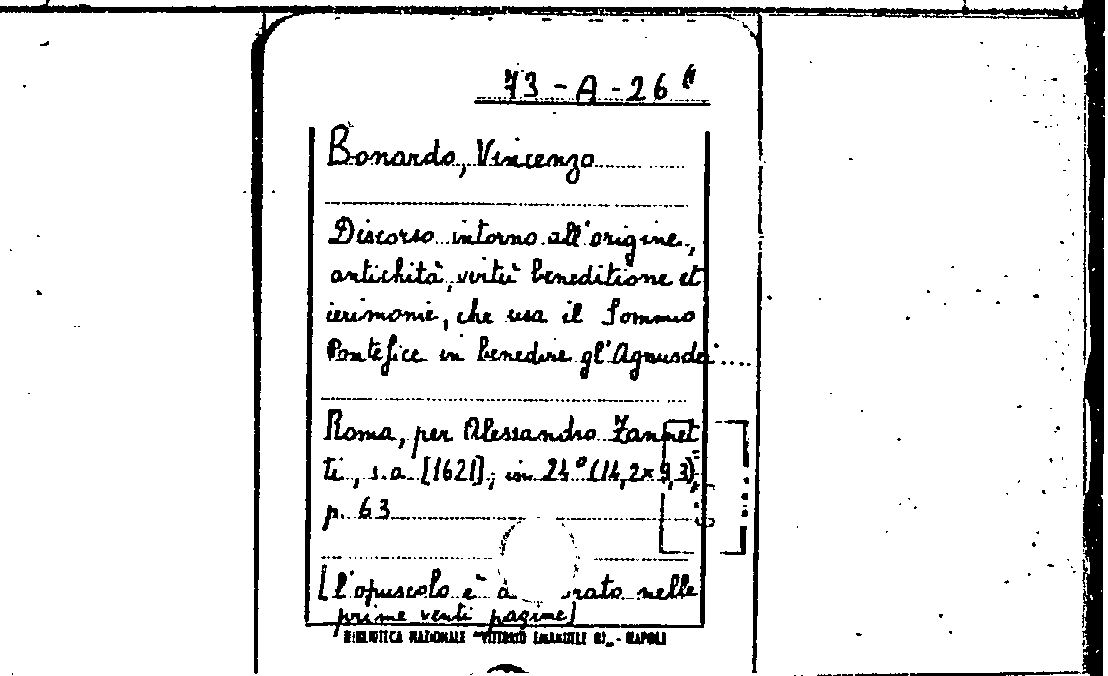 73-A-26
Bonardo, Vincenzo
Discorso intorno all'origine,
antichità, virtù beneditione et
cerimonie, che usa il Sommo
Pontefice in benedire gl'Agnusdei....
Roma, per Alessandro Zannet
ti, s.a. [1621]; in 24° (14,2×9,3),
p. 63
[l'opuscolo è nelle
prime venti pagine]
BIBLIOTECA NAZIONALE "VITTORIO EMANUELE III" - NAPOLI